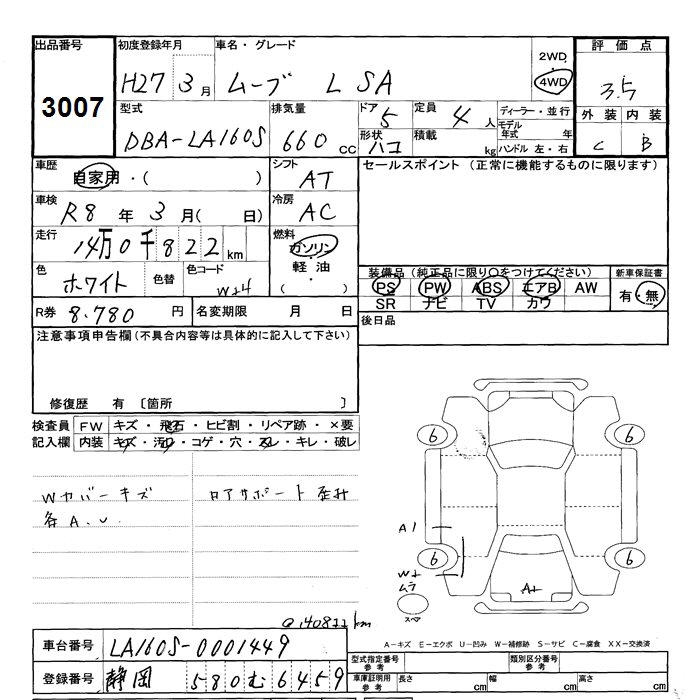 出品番号 初度登録年月 車名・グレード 2WD 評価点
3007 H27 3月 ムーブ L SA 4WD 3.5
型式 排気量 ドア 定員 ディーラー・並行 外装 内装
DBA-LA160S 660cc 5 4人 モデル年式 年 C B
形状 ハコ 積載 kg ハンドル 左・右
車歴 自家用・( ) シフト AT セールスポイント (正常に機能するものに限ります)
車検 R8年3月( 日) 冷房 AC
走行 14万0千822km 燃料 ガソリン・軽油・( )
色 ホワイト 色替 色コード W24
装備品 (純正品に限り○をつけてください) 新車保証書
PS PW ABS エアB AW 有・無
SR ナビ TV カワ
R券 8.780円 名変期限 月 日 後日品
注意事項申告欄 (不具合内容等は具体的に記入して下さい)
修復歴 有 〔箇所 〕
検査員記入欄 FW キズ・飛石・ヒビ割・リペア跡・×要
内装 キズ・汚レ・コゲ・穴・スレ・キレ・破レ
Wカバーキズ ロアサポート歪み
各A.U
6 6
A1
6 6
ムラ
スペア
A-キズ E-エクボ U-凹み W-補修跡 S-サビ C-腐食 XX-交換済
車台番号 LA160S-0001449
登録番号 静岡 580 む 6459
型式指定番号参考 類別区分番号参考
車庫証明用参考 長さ cm 幅 cm 高さ cm